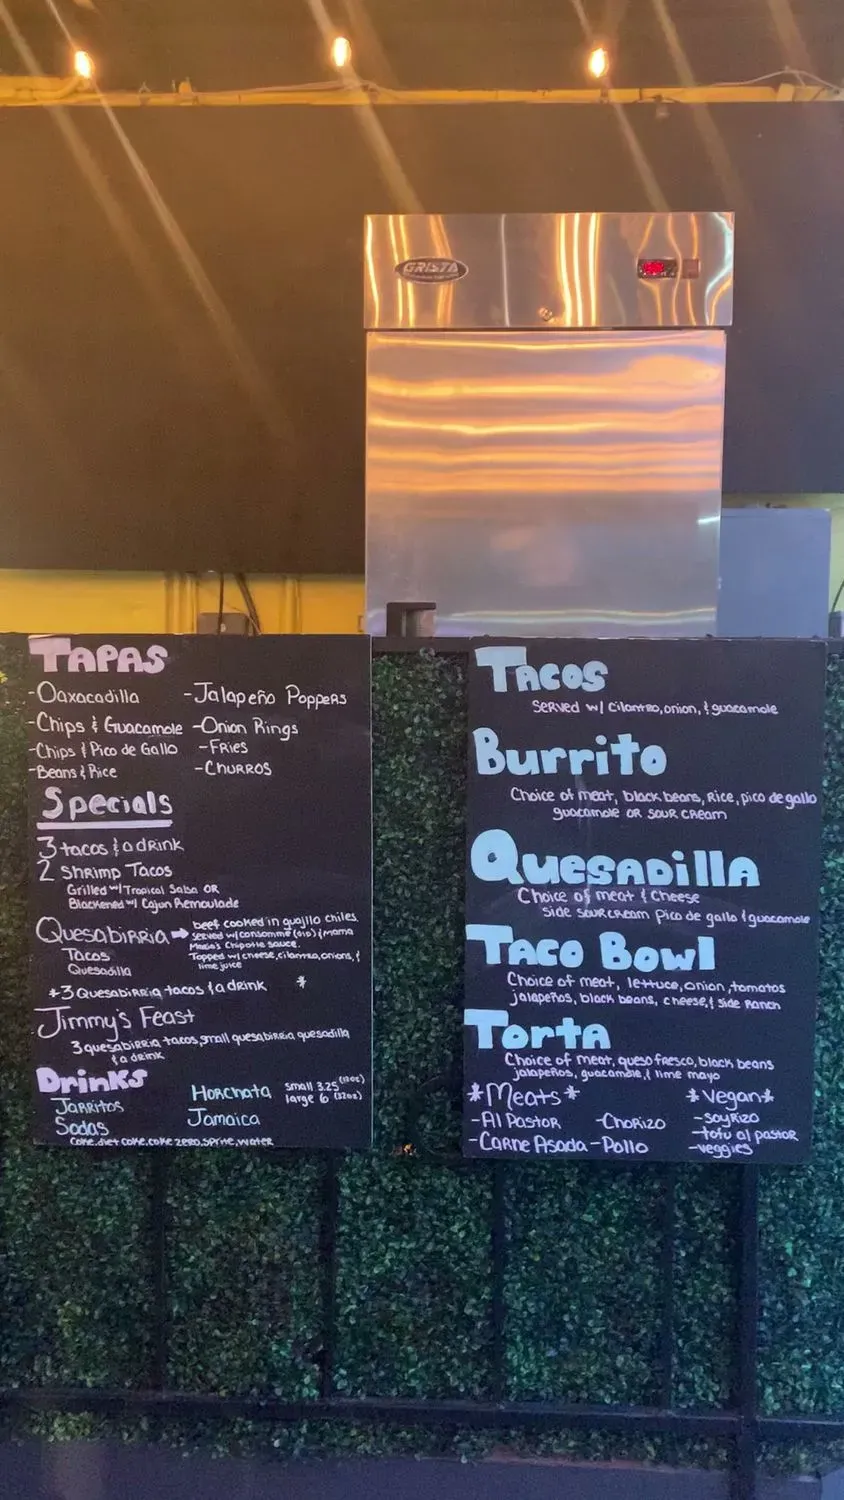 GRISTA
TAPAS
-Oaxacadilla
-Jalapeño Poppers
-Chips & Guacamole
-Onion Rings
-Chips & Pico de Gallo
-Fries
-Beans & Rice
-Churros
Specials
3 tacos & a drink
2 Shrimp Tacos
Grilled w/ Tropical Salsa OR
Blackened w/ Cajun Remoulade
Quesabirria → beef cooked in guajillo chiles.
served w/ consommé (4oz) & Mama
Maria's Chipotle sauce.
Tacos
Topped w/ cheese, cilantro, onions, &
Quesadilla
lime juice
*3 Quesabirria tacos & a drink *
Jimmy's Feast
3 quesabirria tacos, small quesabirria quesadilla
& a drink
Drinks
Jarritos
Horchata
small 3.25
large 6 (32oz)
Sodas
Jamaica
Coke, diet coke, coke zero, sprite, water
Tacos
Served w/ cilantro, onion, & guacamole
Burrito
Choice of meat, black beans, Rice, pico de gallo
guacamole OR sour cream
Quesadilla
Choice of meat & cheese
side sour cream pico de gallo & guacamole
Taco Bowl
Choice of meat, lettuce, onion, tomatos
jalapeños, black beans, cheese, & side Ranch
Torta
Choice of meat, queso fresco, black beans
jalapeños, guacamole, & lime mayo
*Meats*
-Al Pastor
-Chorizo
-Carne Asada
-Pollo
*Vegan*
-soyRizo
-tofu al pastor
-veggies